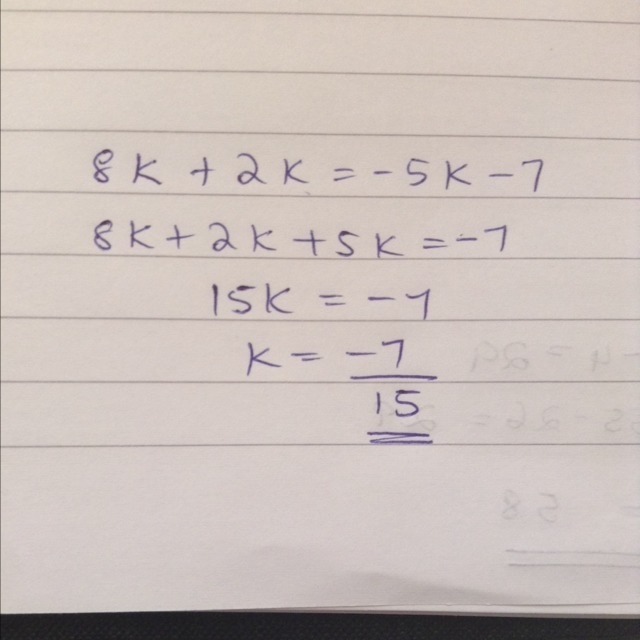 8K + 2K = -5K - 7
8K + 2K + 5K = -7
15K = -7
K = -7
15